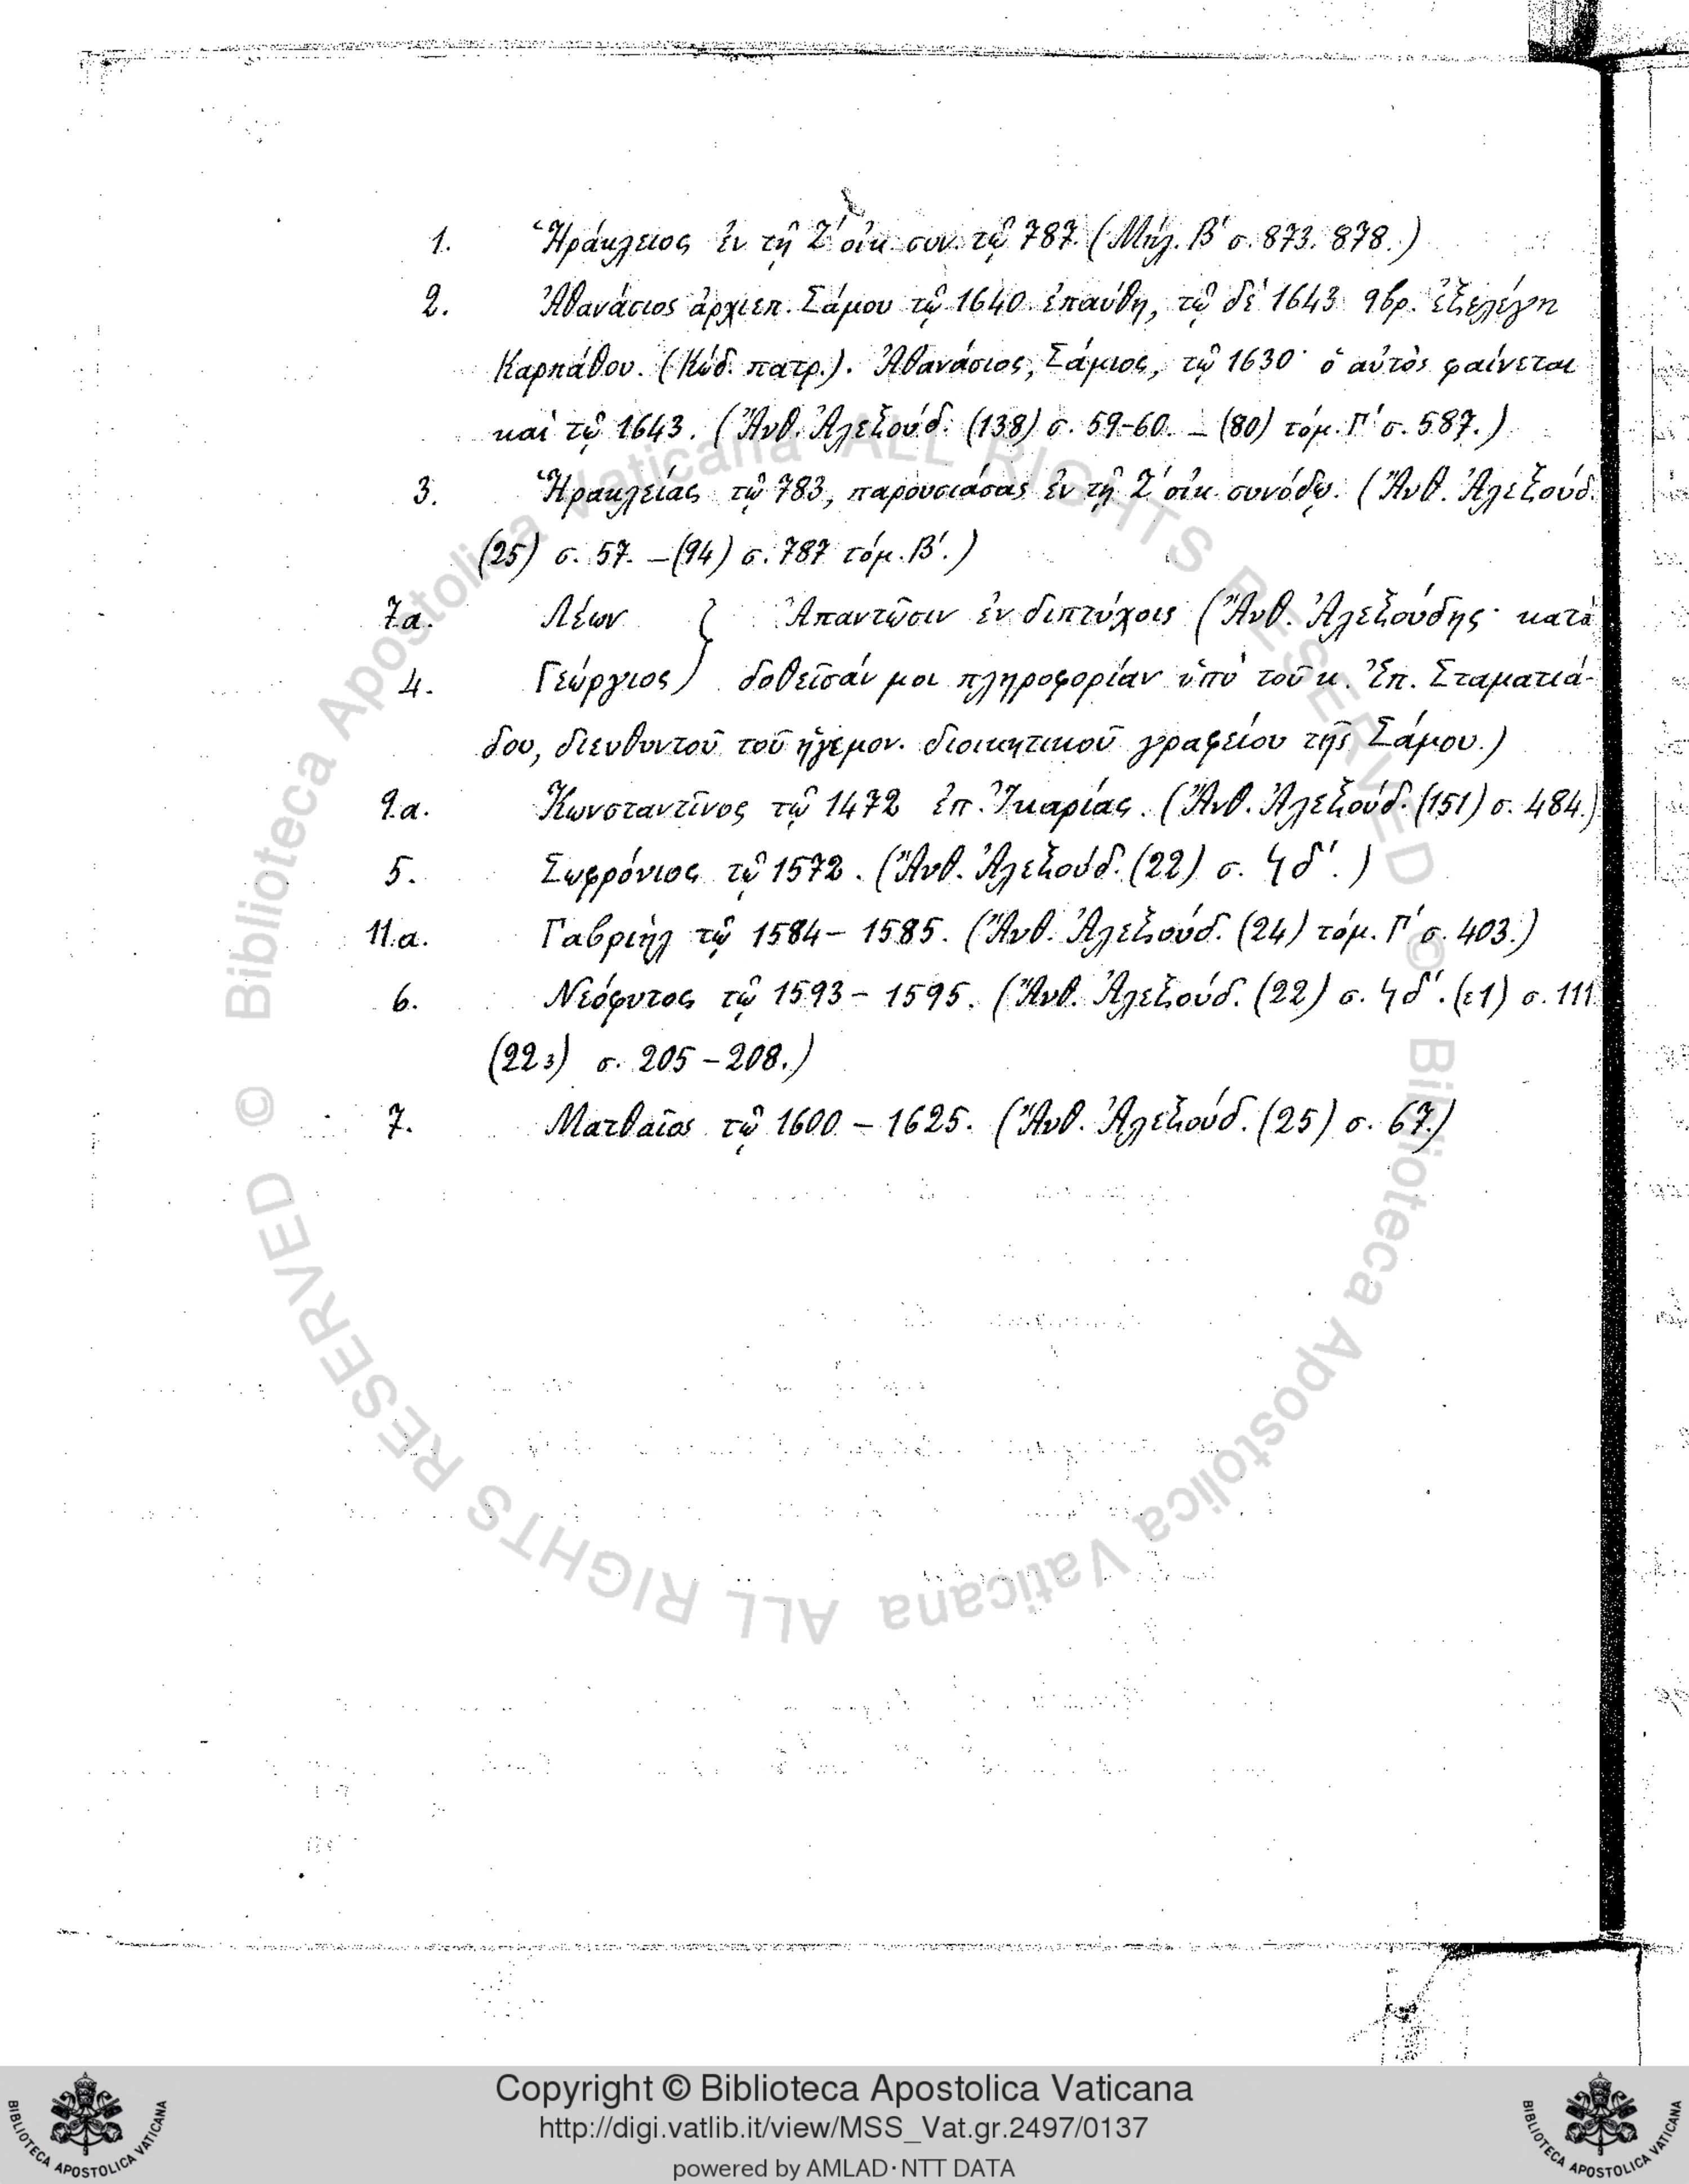 1. Ἡράκλειος ἐν τῇ Ζ' οἰκ. συν. τῷ 787. (Μηλ. Β' σ. 873. 878.)
2. Ἀθανάσιος ἀρχιεπ. Σάμου τῷ 1640 ἐπαύθη, τῷ δὲ 1643 9βρ. ἐξελέγη
Καρπάθου. (Κώδ. πατρ.). Ἀθανάσιος, Σάμιος, τῷ 1630· ὁ αὐτὸς φαίνεται
καὶ τῷ 1643. (Ἄνθ. Ἀλεξούδ. (138) σ. 59-60. – (80) τόμ. Γ' σ. 587.)
3. Ἡρακλείας τῷ 783, παρουσιάσας ἐν τῇ Ζ' οἰκ. συνόδῳ. (Ἄνθ. Ἀλεξούδ.
(25) σ. 57. – (94) σ. 787 τόμ. Β'.)
7.α. Λέων } Ἀπαντῶσιν ἐν διπτύχοις (Ἄνθ. Ἀλεξούδης· κατὰ
4. Γεώργιος } δοθεῖσάν μοι πληροφορίαν ὑπὸ τοῦ κ. Ἐπ. Σταματιά-
δου, διευθυντοῦ τοῦ ἡγεμον. διοικητικοῦ γραφείου τῆς Σάμου.)
9.α. Κωνσταντῖνος τῷ 1472 ἐπ. Ἰκαρίας. (Ἄνθ. Ἀλεξούδ. (151) σ. 484.)
5. Σωφρόνιος τῷ 1572. (Ἄνθ. Ἀλεξούδ. (22) σ. ϟδ'.)
11.α. Γαβριὴλ τῷ 1584 – 1585. (Ἄνθ. Ἀλεξούδ. (24) τόμ. Γ' σ. 403.)
6. Νεόφυτος τῷ 1593 – 1595. (Ἄνθ. Ἀλεξούδ. (22) σ. ϟδ'. (ε1) σ. 111.
(223) σ. 205 – 208.)
7. Ματθαῖος τῷ 1600 – 1625. (Ἄνθ. Ἀλεξούδ. (25) σ. 67.)
© Biblioteca Apostolica Vaticana ALL RIGHTS RESERVED
© Biblioteca Apostolica Vaticana ALL RIGHTS RESERVED
Copyright © Biblioteca Apostolica Vaticana
http://digi.vatlib.it/view/MSS_Vat.gr.2497/0137
powered by AMLAD·NTT DATA
BIBLIOTECA APOSTOLICA VATICANA
BIBLIOTECA APOSTOLICA VATICANA